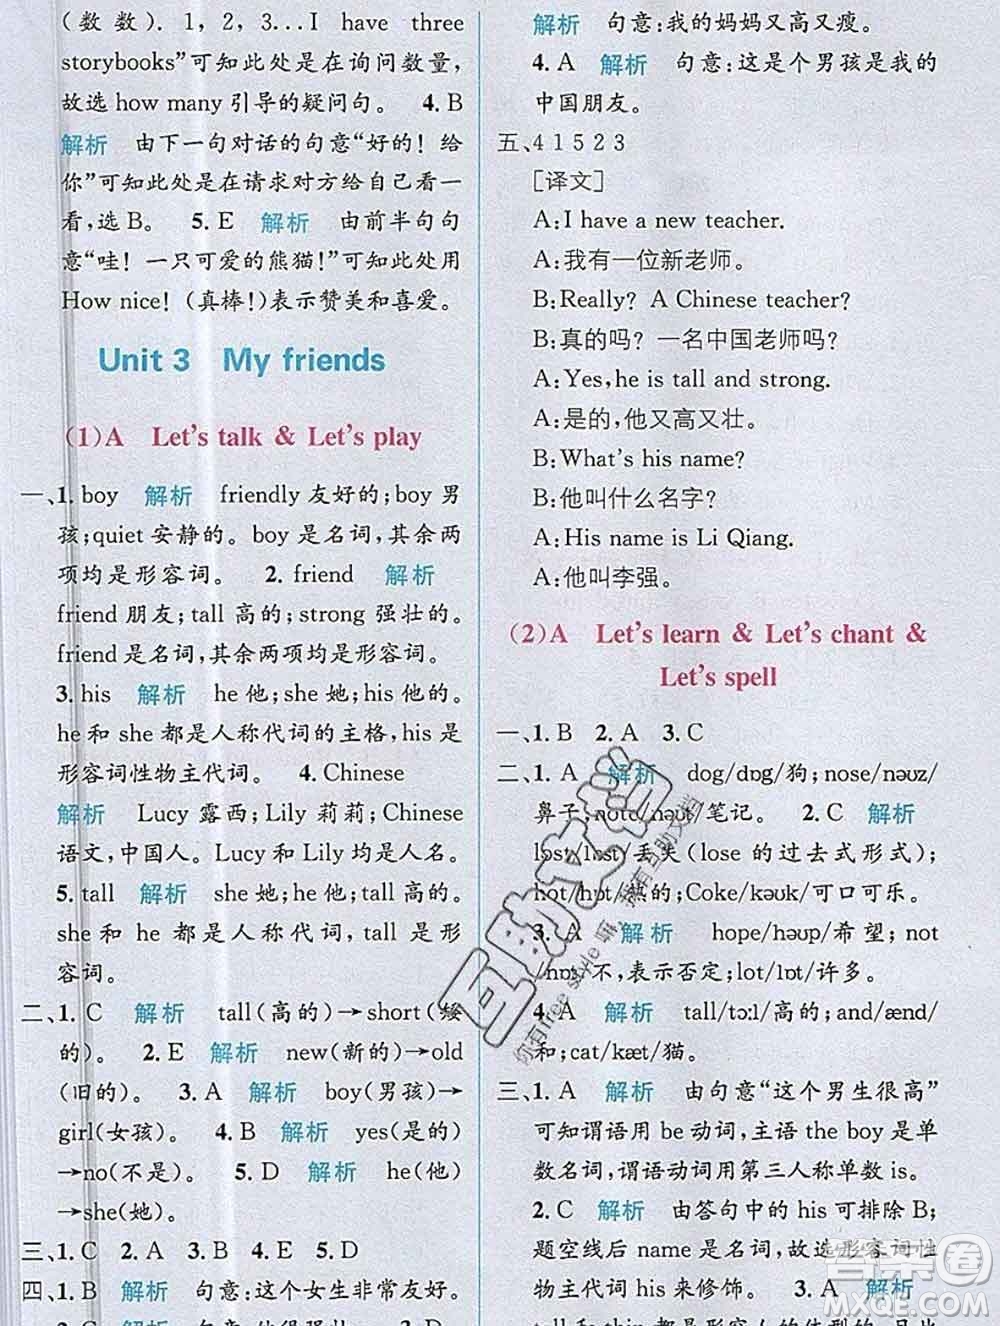 (数数). 1, 2, 3…I have three
storybooks”可知此处是在询问数量,
故选 how many 引导的疑问句。 4. B
解析 由下一句对话的句意“好的! 给
你”可知此处是在请求对方给自己看一
看,选 B。 5. E 解析 由前半句句
意“哇! 一只可爱的熊猫!”可知此处用
How nice! (真棒!)表示赞美和喜爱。
Unit 3 My friends
(1)A Let’s talk & Let’s play
一、1. boy 解析 friendly 友好的;boy 男
孩;quiet 安静的。boy 是名词,其余两
项均是形容词。 2. friend 解析
friend 朋友;tall 高的;strong 强壮的。
friend 是名词,其余两项均是形容词。
3. his 解析 he 他;she 她;his 他的。
he 和 she 都是人称代词的主格,his 是
形容词性物主代词。 4. Chinese
解析 Lucy 露西;Lily 莉莉;Chinese
语文,中国人。Lucy 和 Lily 均是人名。
5. tall 解析 she 她;he 他;tall 高的。
she 和 he 都是人称代词,tall 是形
容词。
二、1. C 解析 tall(高的)→short(矮
的)。 2. E 解析 new(新的)→old
(旧的)。 3. A 解析 boy(男孩)→
girl(女孩)。 4. B 解析 yes(是的)
→no(不是)。 5. D 解析 he(他)
→she(她)。
三、1. C 2. A 3. B 4. E 5. D
四、1. B 解析 句意:这个女生非常友好。
解析 句意:我的妈妈又高又瘦。
4. A 解析 句意:这是个男孩是我的
中国朋友。
五、4 1 5 2 3
[译文]
A:I have a new teacher.
A:我有一位新老师。
B:Really? A Chinese teacher?
B:真的吗? 一名中国老师吗?
A:Yes,he is tall and strong.
A:是的,他又高又壮。
B:What’s his name?
B:他叫什么名字?
A:His name is Li Qiang.
A:他叫李强。
(2)A Let’s learn & Let’s chant &
Let’s spell
一、1. B 2. A 3. C
二、1. A 解析 dog/dɒg/狗;nose/nəʊz/
鼻子;note/nəʊt/笔记。 2. C 解析
lost/lɒst/丢失(lose 的过去式形式);
hot/hɒt/热的;Coke/kəʊk/可口可乐。
3. A 解析 hope/həʊp/希望;not
/nɒt/不,表示否定;lot/lɒt/许多。
4. A 解析 tall/tɔːl/高的;and/ænd/
和;cat/kæt/猫。
三、1. A 解析 由句意“这个男生很高”
可知谓语用 be 动词,主语 the boy 是单
数名词,谓语动词用第三人称单数 is。
2. C 解析 由答句中的 his 可排除 B;
题空线后 name 是名词,故选形容词性
物主代词 his 来修饰。 3. A 解析
互助文档
你有free style嘛,我有互助文档
答案圈
MXQE.COM